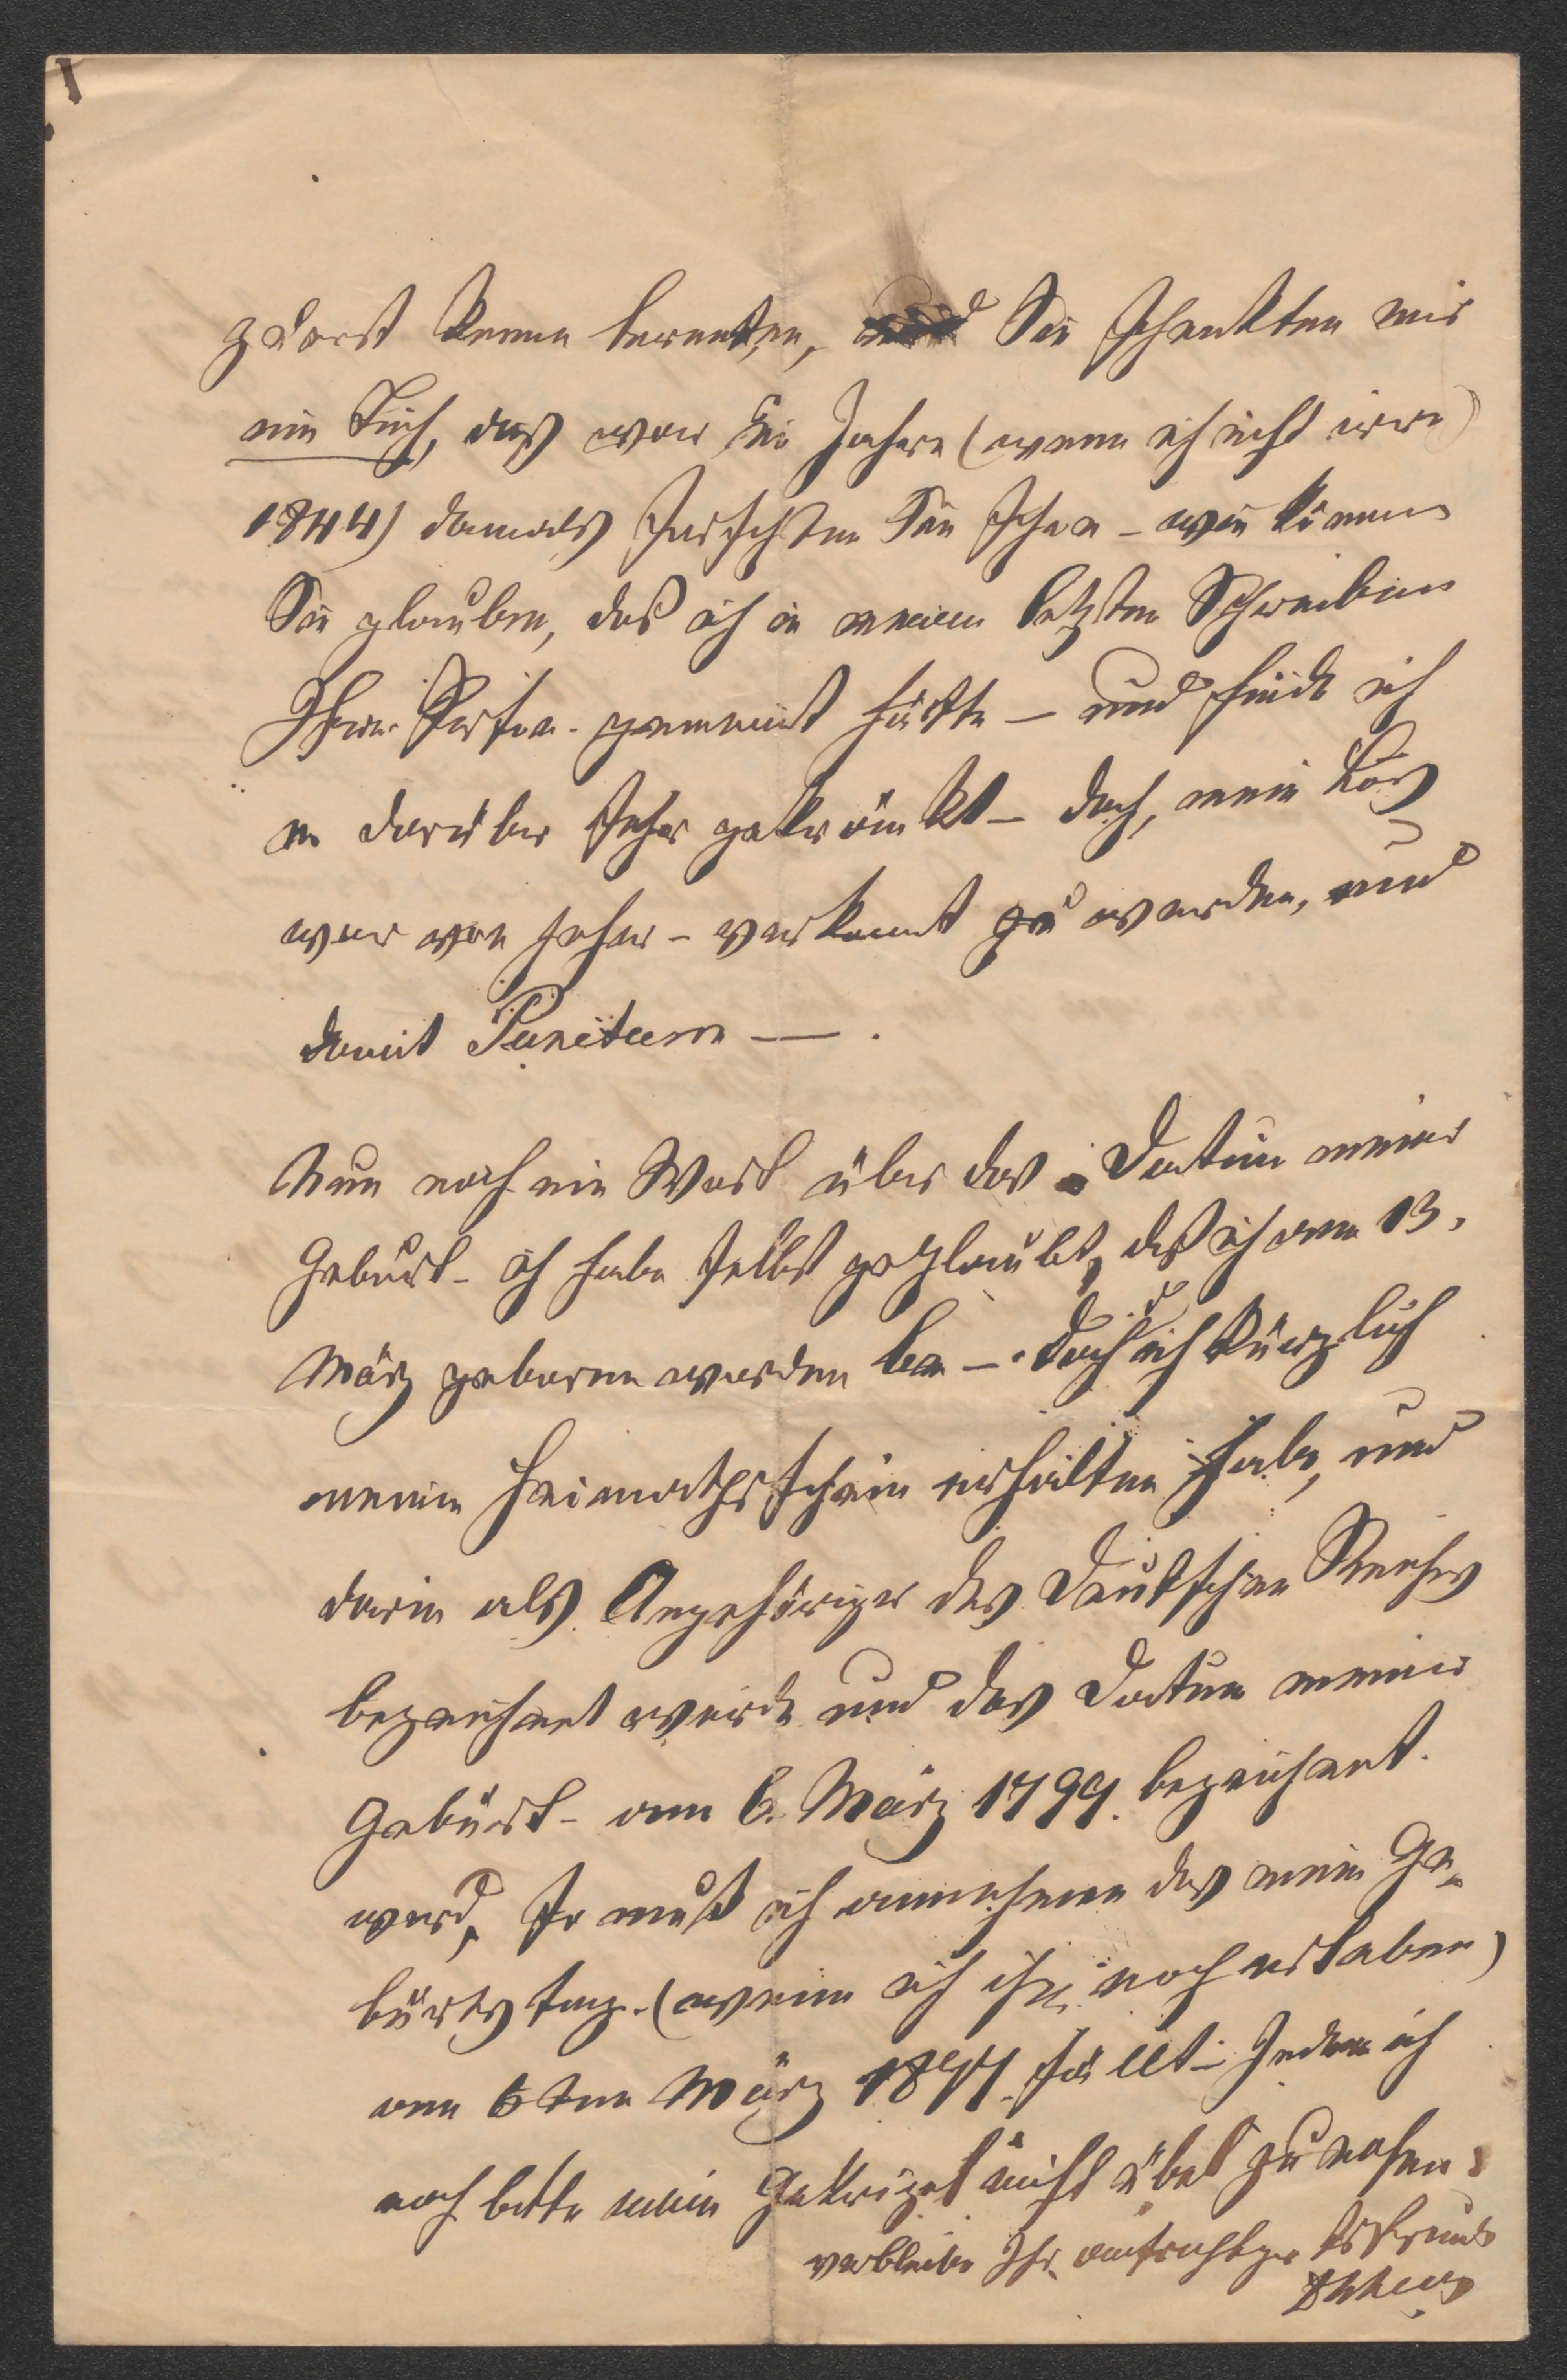 zuerst kennen lernten, und Sie schenkten mir
ein Buch, das war im Jahre (wenn ich nicht irre)
1844) damals herrschten Sie schon – wie können
Sie glauben, daß ich in meinem letzten Schreiben
Ihre Person gemeint hätte – und finde ich
m darüber sehr gekränkt – doch, mein Loos
war von jeher – verkannt zu werden, und
damit Punctum — .
Nun noch ein Wort über das Datum meiner
Geburt – ich habe selbst geglaubt, daß ich am 13.
März geboren worden bin – doch da ich kürzlich
meinen Heimathsschein erhalten habe, und
darin als Angehöriger des Deutschen Reiches
bezeichnet werde und das Datum meiner
Geburt – am 6. März 1799. bezeichnet
ward, so muß ich annehmen das mein Ge-
burtstag. (wenn ich ihn noch erlebe)
am 6ten März 1877. fällt – Indem ich
noch bitte mein Gekritzel nicht übel zu nehmen
verbleibe Ihr aufrichtiger Freund